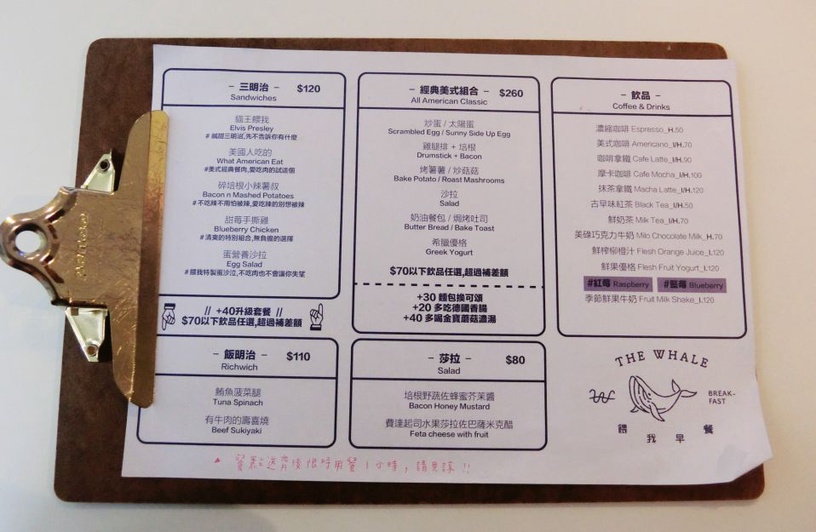 - 三明治 - $120
Sandwiches
貓王腰我
Elvis Presley
美國人吃的
What American Eat
#美式經典餐肉,愛吃肉的試這個
碎培根小辣薯叔
Bacon n Mashed Potatoes
#不吃辣不用怕被辣,愛吃辣的別想被辣
甜莓手撕雞
Blueberry Chicken
#清爽的特別組合,無負擔的選擇
蜜營養沙拉
Egg Salad
#餵我特製蛋沙泣,不吃肉也不會讓你失望
// +40升級套餐 //
$70以下飲品任選,超過補差額
- 飯明治 - $110
Richwich
鮪魚菠菜腿
Tuna Spinach
有牛肉的壽喜燒
Beef Sukiyaki
- 經典美式組合 - $260
All American Classic
炒蛋 / 太陽蛋
Scrambled Egg / Sunny Side Up Egg
雞腿排 + 培根
Drumstick + Bacon
烤薯薯 / 炒菇菇
Bake Potato / Roast Mashrooms
沙拉
Salad
奶油餐包 / 焗烤吐司
Butter Bread / Bake Toast
希臘優格
Greek Yogurt
$70以下飲品任選,超過補差額
+30 麵包換可頌
+20 多吃德國香腸
+40 多喝金寶蘑菇濃湯
- 莎拉 - $80
Salad
培根野蔬佐蜂蜜芥茉醬
Bacon Honey Mustard
費達起司水果莎拉佐巴薩米克醋
Feta cheese with fruit
- 飲品 -
Coffee & Drinks
濃縮咖啡 Espresso_H.50
美式咖啡 Americano_I/H.70
咖啡拿鐵 Cafe Latte_I/H.90
摩卡咖啡 Cafe Mocha_I/H.100
抹茶拿鐵 Macha Latte_I/H.120
古早味紅茶 Black Tea_I/H.50
鮮奶茶 Milk Tea_I/H.70
美祿巧克力牛奶 Milo Chocolate Milk_H.70
鮮榨柳橙汁 Flesh Orange Juice_I.120
鮮果優格 Flesh Fruit Yogurt_I.120
#紅莓 Raspberry #藍莓 Blueberry
季節鮮果牛奶 Fruit Milk Shake_I.120
THE WHALE
BREAK-
FAST
餵 我 早 餐
▲ 餐點送齊後限時用餐1小時,請見諒!!